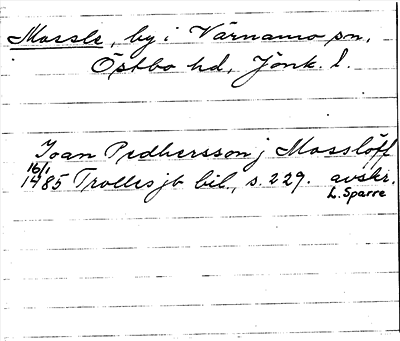 Mossle, by i Värnamo sn,
Östbo hd, Jönk. l.
Joan Pedhersson j Mossløff
16/1 1485 Trolles jb bil., s. 229. avskr.
L. Sparre